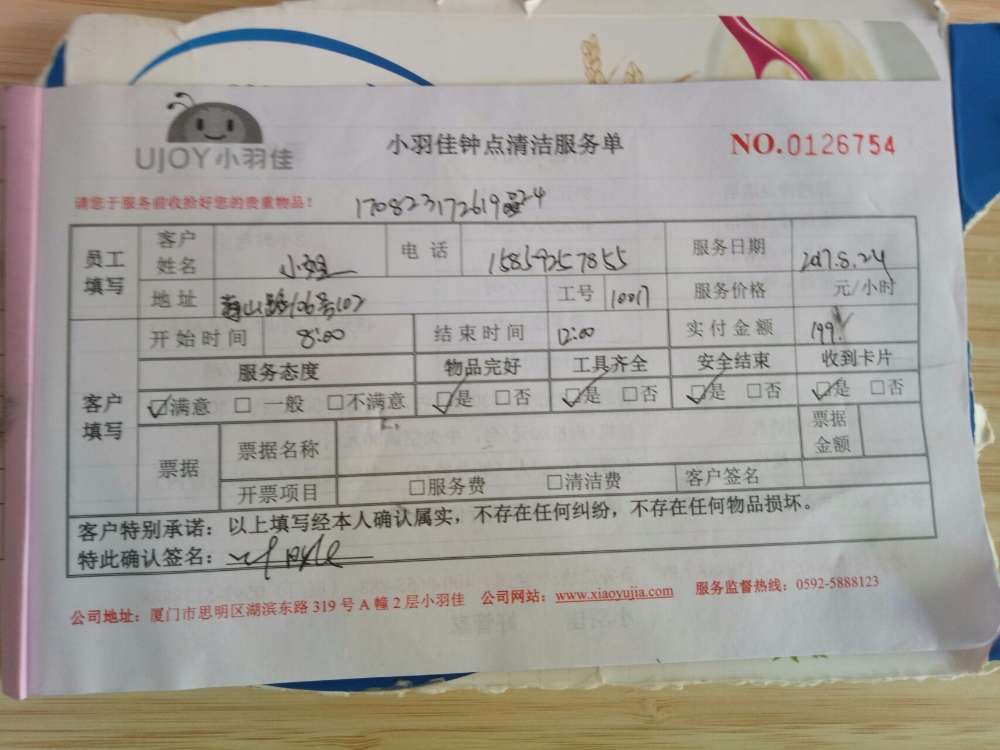 UJOY小羽佳
小羽佳钟点清洁服务单
NO.0126754
请您于服务前收拾好您的贵重物品！
员工填写
客户姓名
电话 15859257855
服务日期 2017.8.24
地址 106号102
工号 10017
服务价格 元/小时
客户填写
开始时间 8:00
结束时间 12:00
实付金额 199
服务态度 物品完好 工具齐全 安全结束 收到卡片
☑满意 □一般 □不满意 ☑是 □否 ☑是 □否 ☑是 □否 ☑是 □否
票据 票据名称 票据金额
开票项目 □服务费 □清洁费 客户签名
客户特别承诺：以上填写经本人确认属实，不存在任何纠纷，不存在任何物品损坏。
特此确认签名：
公司地址：厦门市思明区湖滨东路319号A幢2层小羽佳 公司网站：www.xiaoyujia.com 服务监督热线：0592-5888123